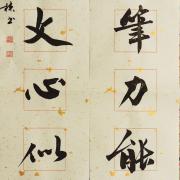 筆力能
文心似
書